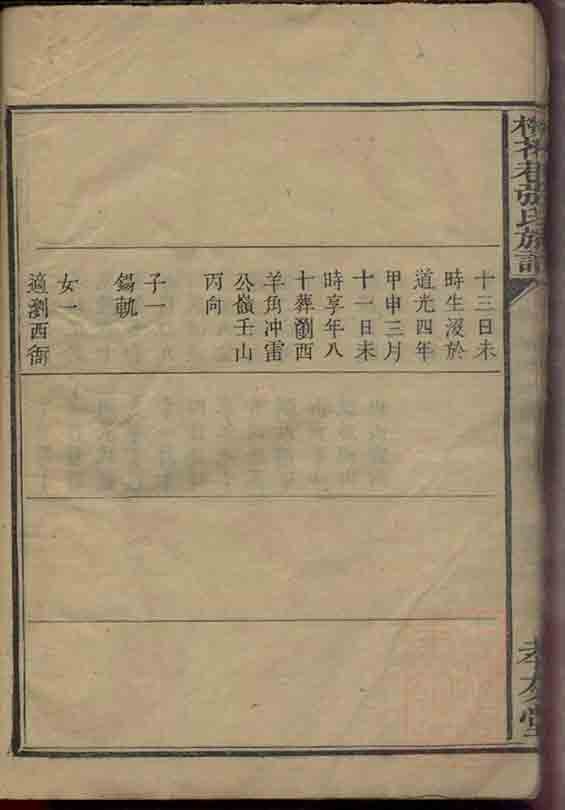 十三日未
時生沒於
道光四年
甲申三月
十一日未
時享年八
十葬瀏西
羊角冲雷
公嶺壬山
丙向
子一
錫軌
女一
適瀏西衙
花巷張氏族譜
孝友堂